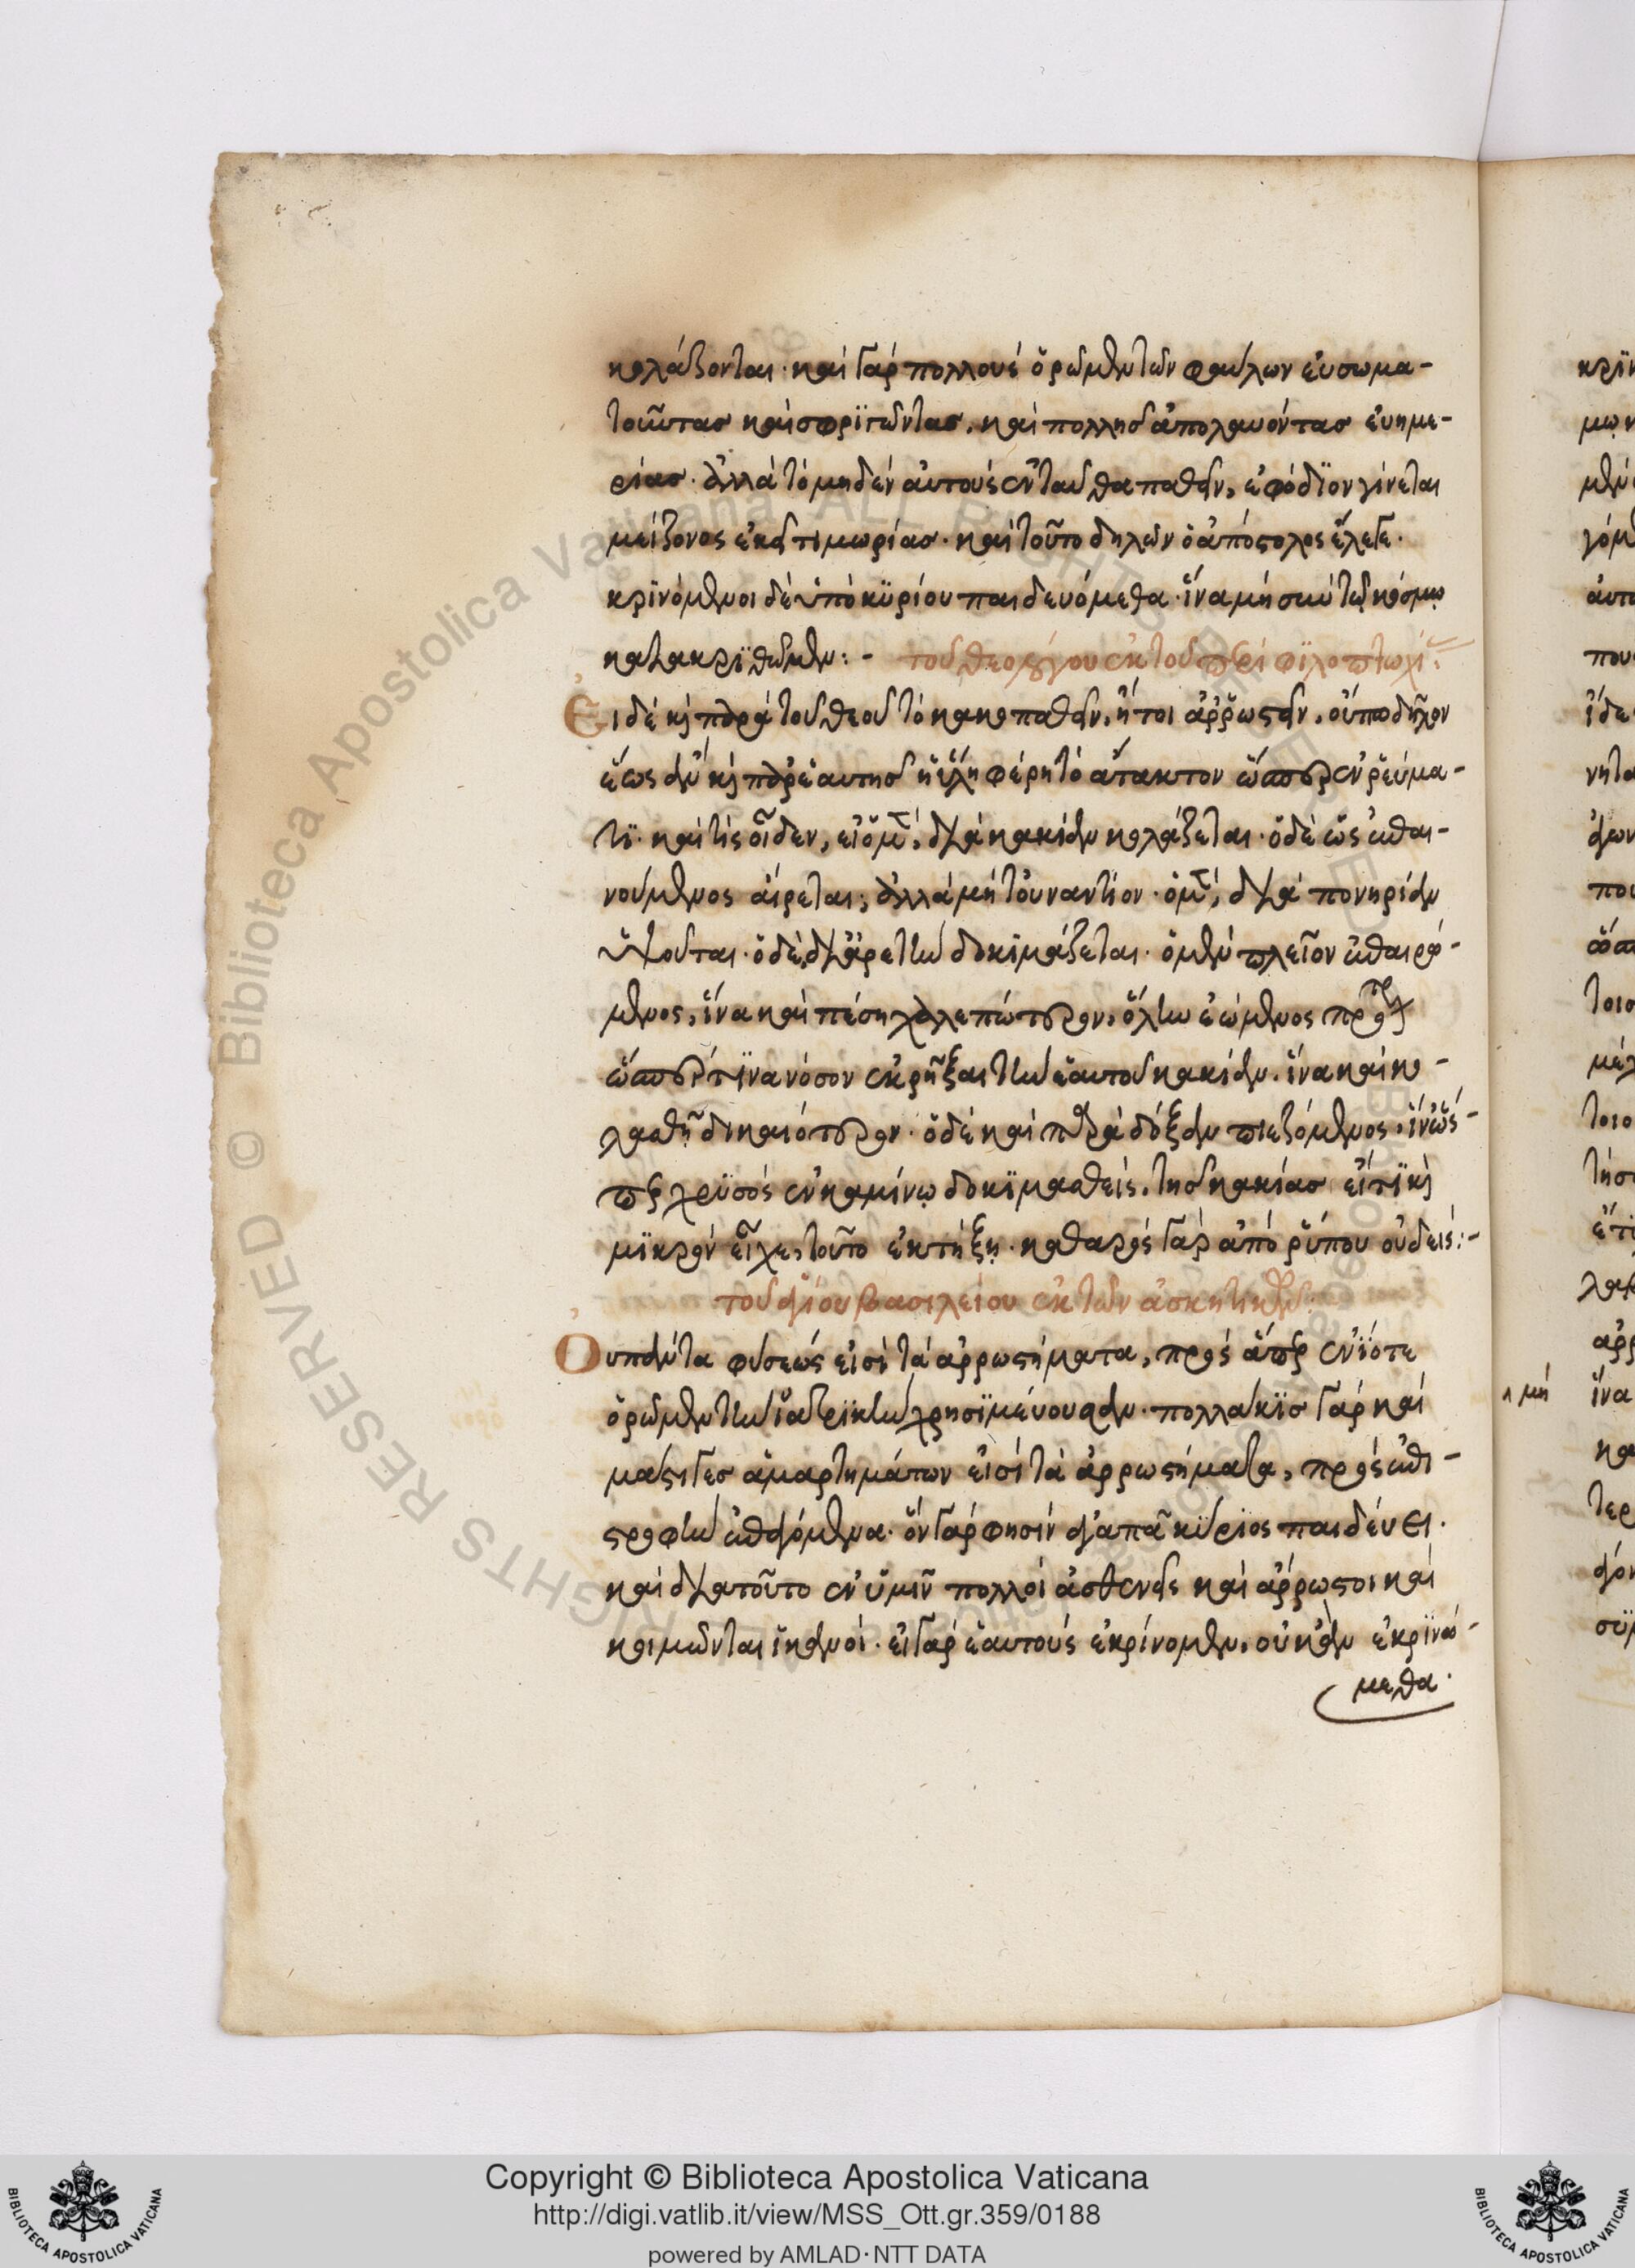 κολάζονται· καὶ γὰρ πολλοὺς ὁρῶμεν τῶν φαύλων εὐσωμα-
τοῦντας καὶ σφριγῶντας, καὶ πολλῆς ἀπολαυόντας εὐημε-
ρίας. ἀλλὰ τὸ μηδὲν αὐτοὺς ἐνταῦθα παθεῖν, ἐφόδιον γίνεται
μείζονος ἐκεῖ τιμωρίας. καὶ τοῦτο δηλῶν ὁ ἀπόστολος ἔλεγε·
κρινόμενοι δὲ ὑπὸ κυρίου παιδευόμεθα· ἵνα μὴ σὺν τῷ κόσμῳ
κατακριθῶμεν:- τοῦ θεολόγου ἐκ τοῦ περὶ φιλοπτωχί:
Εἰ δὲ καὶ παρὰ τοῦ θεοῦ τὸ κακοπαθεῖν, ἤτοι ἀρρωστεῖν, οὔπω δῆλον
ἕως ἂν καὶ παρ' ἑαυτῆς ἡ ὕλη φέρῃ τὸ ἄτακτον ὥσπερ ἐν ῥεύμα-
τι· καὶ τίς οἶδεν, εἰ ὁ μὲν, διὰ κακίαν κολάζεται· ὁ δὲ ὡς ἐπαι-
νούμενος αἴρεται; ἀλλὰ μὴ τοὐναντίον· ὁ μὲν, διὰ πονηρίαν
ὑψοῦται· ὁ δὲ, δι' ἀρετὴν δοκιμάζεται· ὁ μὲν πλεῖον ἐπαιρό-
μενος, ἵνα καὶ πέσῃ χαλεπώτερον,
ὥσπερ τινα νόσον ἐκρῆξαι τὴν ἑαυτοῦ κακίαν, ἵνα καὶ κο-
λασθῇ δικαιότερον· ὁ δὲ καὶ παρὰ δόξαν πιεζόμενος, ἵν' ὥς-
περ χρυσὸς ἐν καμίνῳ δοκιμασθεὶς, τῆς κακίας εἴ τι καὶ
μικρὸν εἶχε, τοῦτο ἐκτήξῃ. καθαρὸς γὰρ ἀπὸ ῥύπου οὐδείς:-
τοῦ ἁγίου βασιλείου ἐκ τῶν ἀσκητικῶν:
Οὐ πάντα φύσεώς εἰσι τὰ ἀρρωστήματα, πρὸς ἅπερ ἐνίοτε
ὁρῶμεν τὴν ἰατρικὴν χρησιμεύουσαν. πολλάκις γὰρ καὶ
μάστιγες ἁμαρτημάτων εἰσὶ τὰ ἀρρωστήματα, πρὸς ἐπι-
στροφὴν ἐπαγόμενα. ὃν γὰρ φησὶν ἀγαπᾷ κύριος παιδεύει.
καὶ διατοῦτο ἐν ὑμῖν πολλοὶ ἀσθενεῖς καὶ ἄρρωστοι καὶ
κοιμῶνται ἱκανοί. εἰ γὰρ ἑαυτοὺς ἐκρίνομεν, οὐκ ἂν ἐκρινό-
μεθα.
Copyright © Biblioteca Apostolica Vaticana
http://digi.vatlib.it/view/MSS_Ott.gr.359/0188
powered by AMLAD·NTT DATA